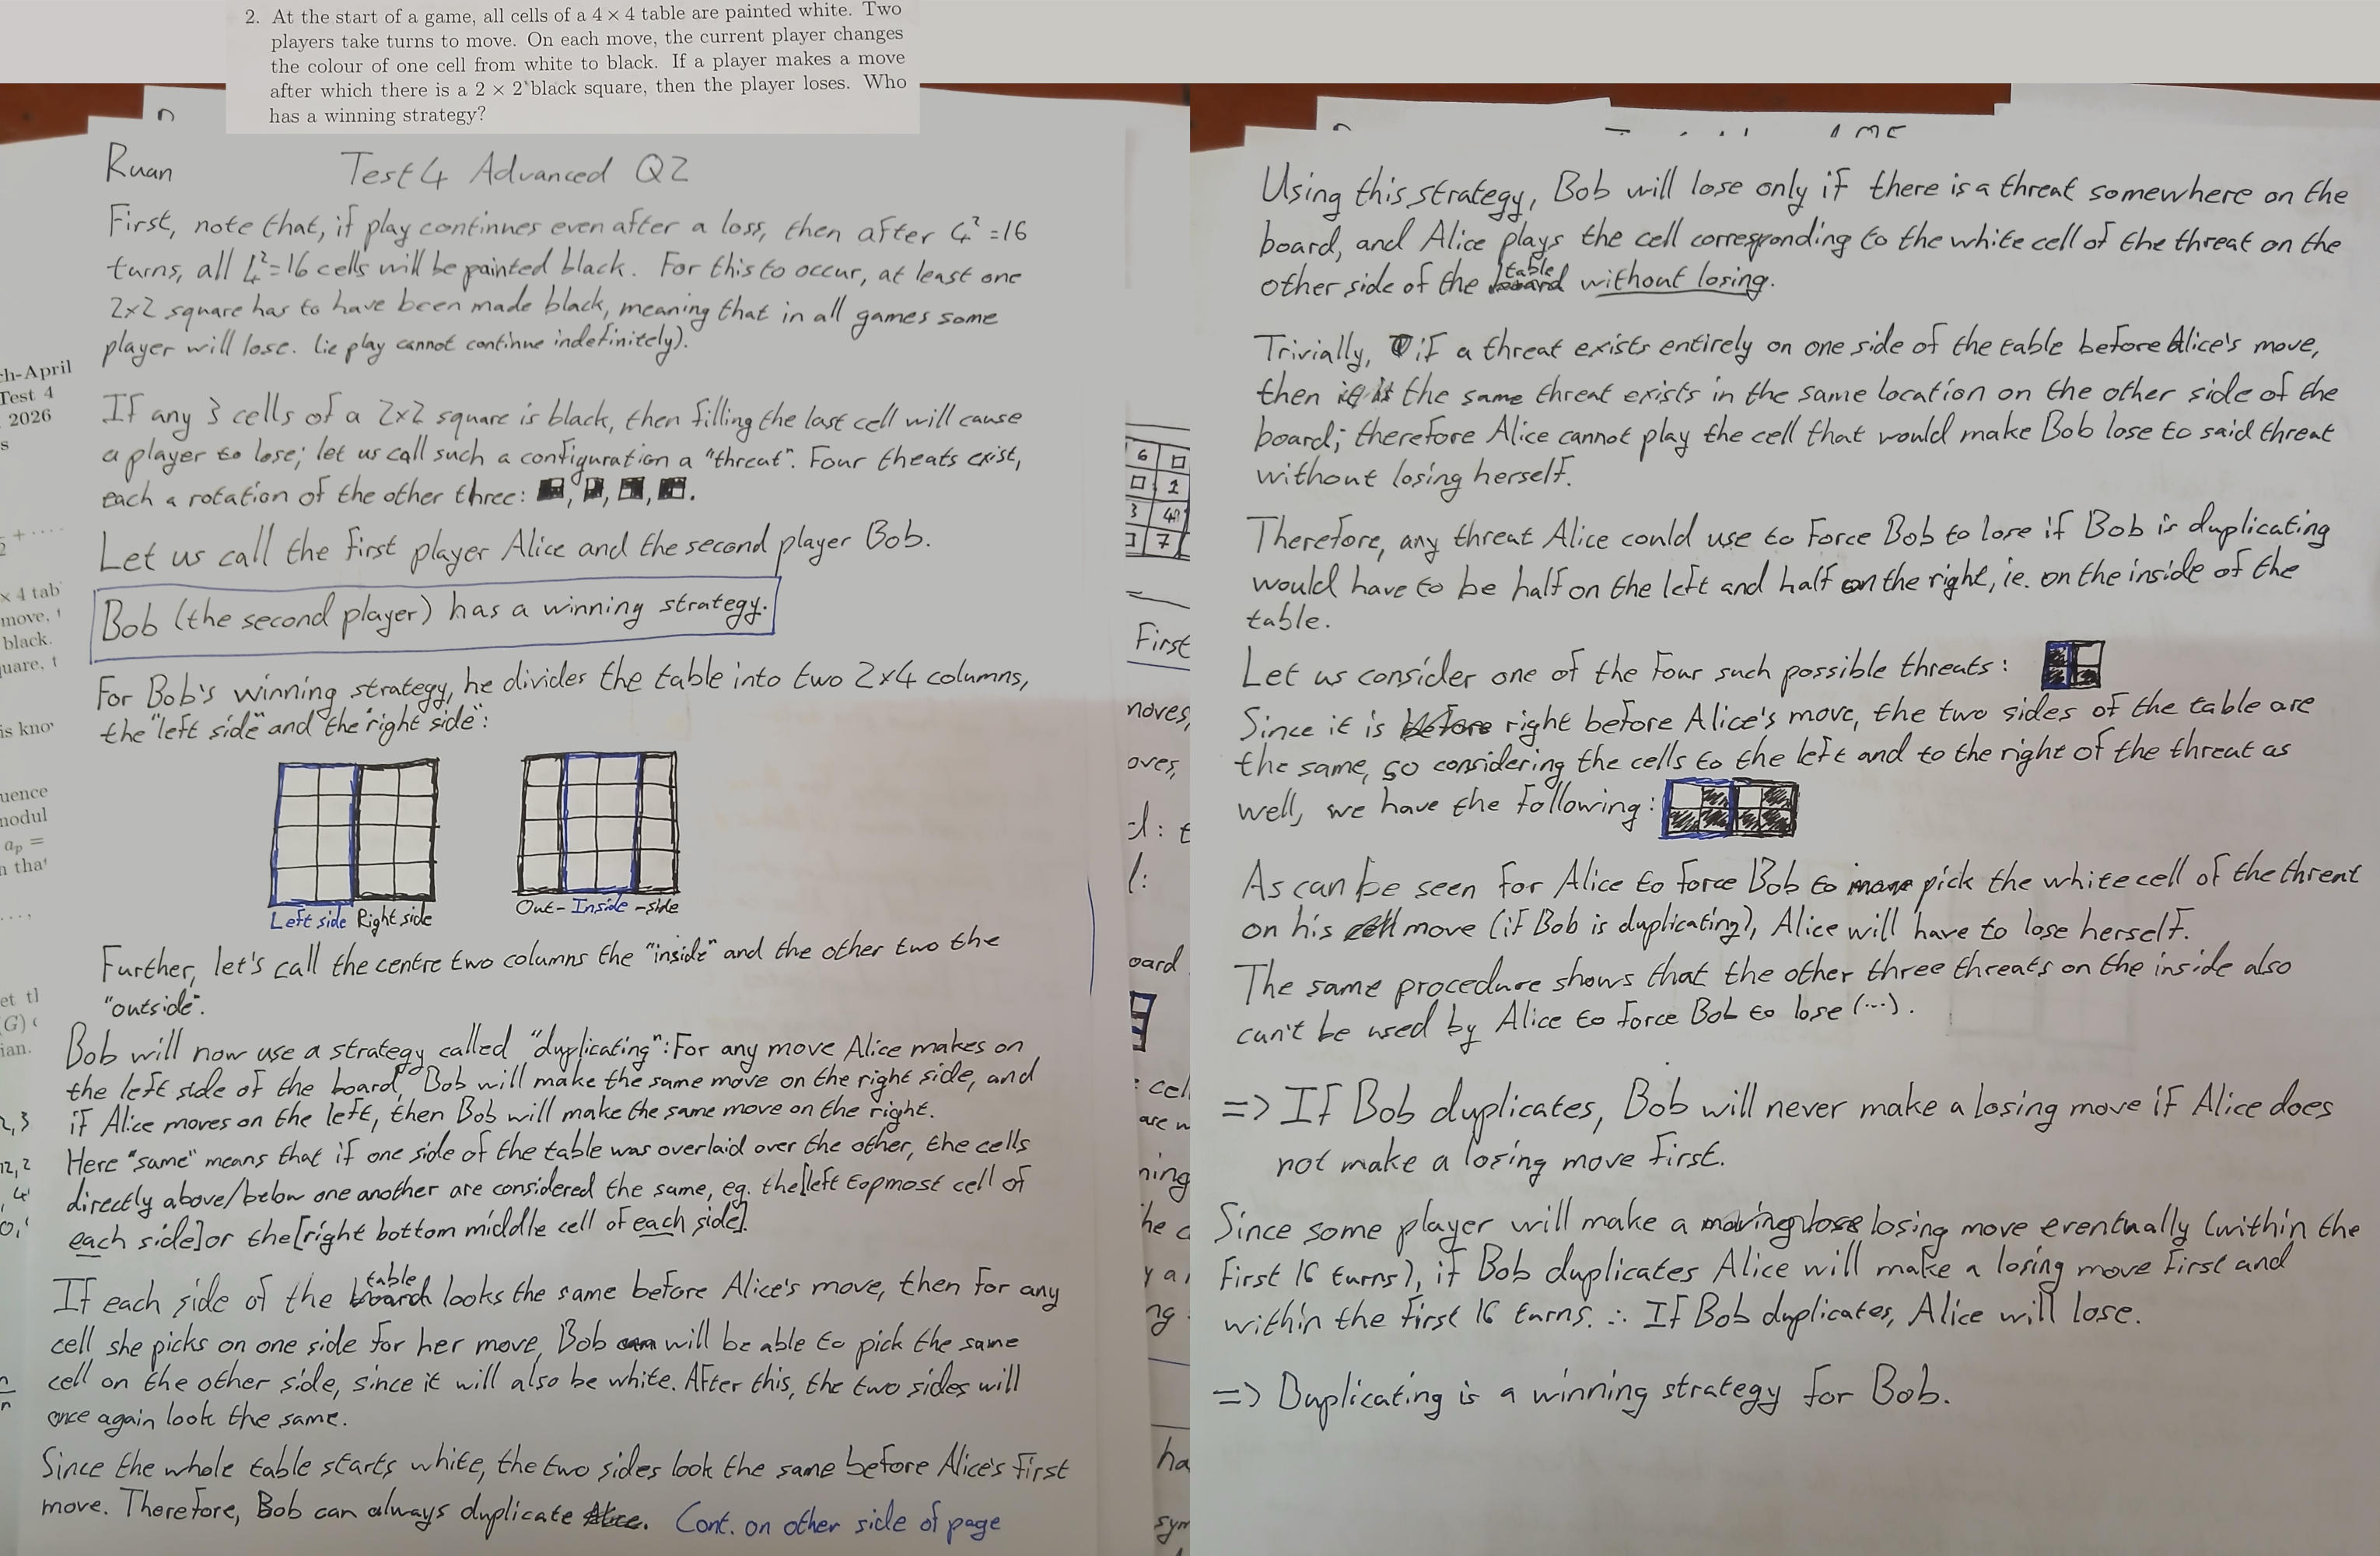 2. At the start of a game, all cells of a 4 × 4 table are painted white. Two
players take turns to move. On each move, the current player changes
the colour of one cell from white to black. If a player makes a move
after which there is a 2 × 2 black square, then the player loses. Who
has a winning strategy?
Ruan Test 4 Advanced Q2
First, note that, if play continues even after a loss, then after 4²=16
turns, all 4²=16 cells will be painted black. For this to occur, at least one
2x2 square has to have been made black, meaning that in all games some
player will lose. (ie play cannot continue indefinitely).
If any 3 cells of a 2x2 square is black, then filling the last cell will cause
a player to lose; let us call such a configuration a "threat". Four theats exist,
each a rotation of the other three: , , , .
Let us call the first player Alice and the second player Bob.
Bob (the second player) has a winning strategy.
For Bob's winning strategy, he divides the table into two 2x4 columns,
the "left side" and the "right side":
Left side Right side
Out- Inside -side
Further, let's call the centre two columns the "inside" and the other two the
"outside".
Bob will now use a strategy called "duplicating": For any move Alice makes on
the left side of the board, Bob will make the same move on the right side, and
if Alice moves on the left, then Bob will make the same move on the right.
Here "same" means that if one side of the table was overlaid over the other, the cells
directly above/below one another are considered the same, eg. the [left topmost cell of
each side] or the [right bottom middle cell of each side].
If each side of the table looks the same before Alice's move, then for any
cell she picks on one side for her move, Bob will be able to pick the same
cell on the other side, since it will also be white. After this, the two sides will
once again look the same.
Since the whole table starts white, the two sides look the same before Alice's first
move. Therefore, Bob can always duplicate. Cont. on other side of page
ch-April
Test 4
2026
s
× 4 tab
move,
black.
quare. t
is kno
uence
modul
a_p =
n that
et tl
(G)
ian.
6
1
3
7
First
moves,
oves,
oard
cel
are w
ning
he c
y a
ng
ha
sym
Using this strategy, Bob will lose only if there is a threat somewhere on the
board, and Alice plays the cell corresponding to the white cell of the threat on the
other side of the table without losing.
Trivially, if a threat exists entirely on one side of the table before Alice's move,
then the same threat exists in the same location on the other side of the
board; therefore Alice cannot play the cell that would make Bob lose to said threat
without losing herself.
Therefore, any threat Alice could use to force Bob to lose if Bob is duplicating
would have to be half on the left and half on the right, ie. on the inside of the
table.
Let us consider one of the four such possible threats:
Since it is right before Alice's move, the two sides of the table are
the same, so considering the cells to the left and to the right of the threat as
well, we have the following:
As can be seen for Alice to force Bob to pick the white cell of the threat
on his move (if Bob is duplicating), Alice will have to lose herself.
The same procedure shows that the other three threats on the inside also
can't be used by Alice to force Bob to lose (...).
=> If Bob duplicates, Bob will never make a losing move if Alice does
not make a losing move first.
Since some player will make a losing move eventually (within the
first 16 turns), if Bob duplicates Alice will make a losing move first and
within the first 16 turns. ∴ If Bob duplicates, Alice will lose.
=> Duplicating is a winning strategy for Bob.